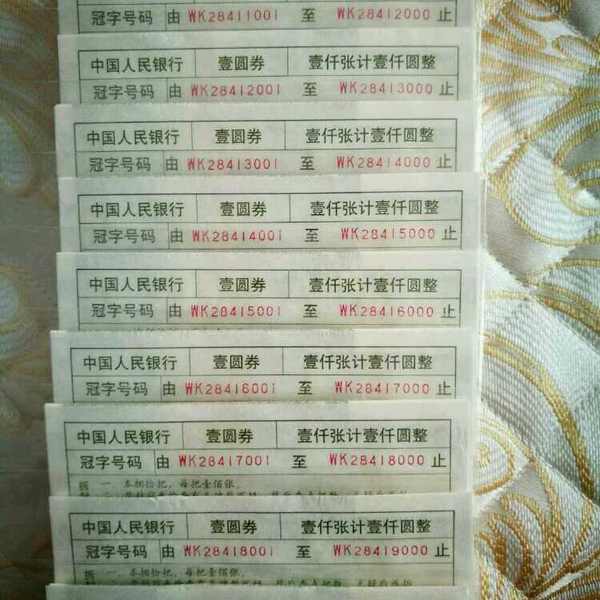 冠字号码 由 WK28411001 至 WK28412000 止
中国人民银行 壹圆券 壹仟张计壹仟圆整
冠字号码 由 WK28412001 至 WK28413000 止
中国人民银行 壹圆券 壹仟张计壹仟圆整
冠字号码 由 WK28413001 至 WK28414000 止
中国人民银行 壹圆券 壹仟张计壹仟圆整
冠字号码 由 WK28414001 至 WK28415000 止
中国人民银行 壹圆券 壹仟张计壹仟圆整
冠字号码 由 WK28415001 至 WK28416000 止
中国人民银行 壹圆券 壹仟张计壹仟圆整
冠字号码 由 WK28416001 至 WK28417000 止
中国人民银行 壹圆券 壹仟张计壹仟圆整
冠字号码 由 WK28417001 至 WK28418000 止
一、本捆拾把，每把壹佰张。
中国人民银行 壹圆券 壹仟张计壹仟圆整
冠字号码 由 WK28418001 至 WK28419000 止
一、本捆拾把，每把壹佰张。